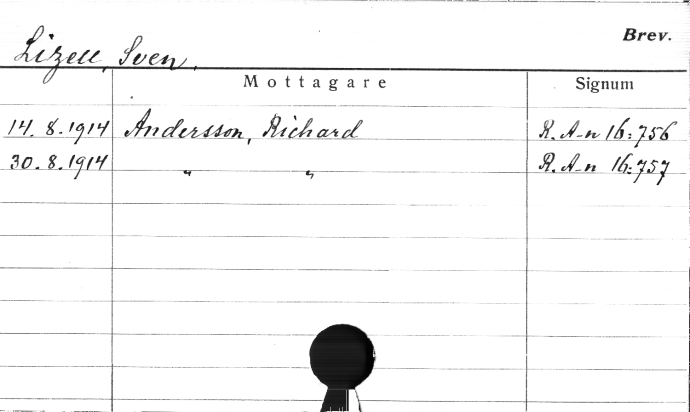 Brev.
Lizell, Sven.
Mottagare Signum
14. 8. 1914 Andersson, Richard R. A-n 16: 756
30. 8. 1914 " " R. A-n 16: 757